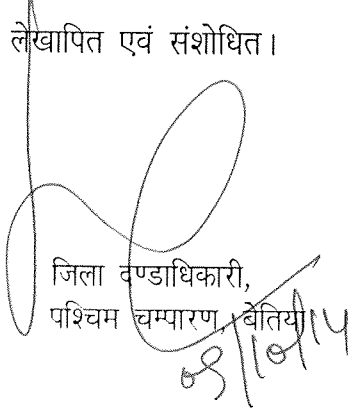 लेखापित एवं संशोधित।
जिला दण्डाधिकारी,
पश्चिम चम्पारण, बेतिया